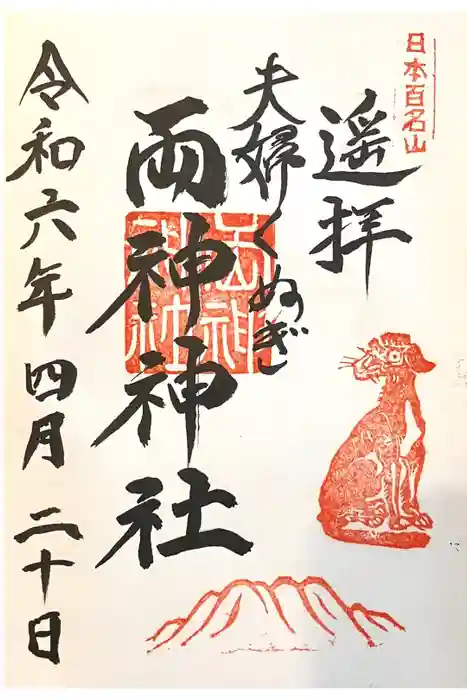 日本百名山
遥拝
夫婦くぬぎ
両神神社
令和六年四月二十日